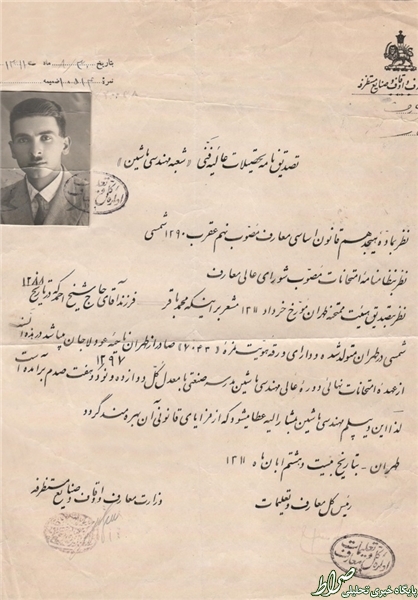 بتاریخ ۳۰ ماه سنه ۱۳۱۱
نمره ۱۰۸۱۳ ضمیمه
معارف و اوقاف و صنایع مستظرفه
تصدیق نامه تحصیلات عالیه فنی «شعبه مهندسی ماشین»
نظر بماده هیجدهم قانون اساسی معارف مصوب نهم عقرب ۱۲۹۰ شمسی
نظر بنظامنامه امتحانات مصوب شورای عالی معارف
نظر بتصدیق هیئت ممتحنه طهران مورخ خرداد ۱۳۱۱ مشعر بر اینکه محمد باقر فرزند آقای حاج شیخ احمد که در تاریخ ۱۲۸۸
شمسی در طهران متولد شده و دارای ورقه هویت نمره (۷۰۴۳) صادر از طهران ناحیه عودلاجان میباشد در
از عهده امتحانات نهائی دوره عالی مهندسی ماشین مدرسه صنعتی بمعدل کل دوازده و نود و هفت صدم ۱۲٫۹۷ برآمده است
لذا این دیپلم مهندسی ماشین بمشارالیه عطا میشود که از مزایای قانونی آن بهره‌مند گردد
طهران - بتاریخ بیست و هشتم ابان ماه ۱۳۱۱
رئیس کل معارف و تعلیمات
وزارت معارف و اوقاف و صنایع مستظرفه
صراط
پایگاه خبری تحلیلی